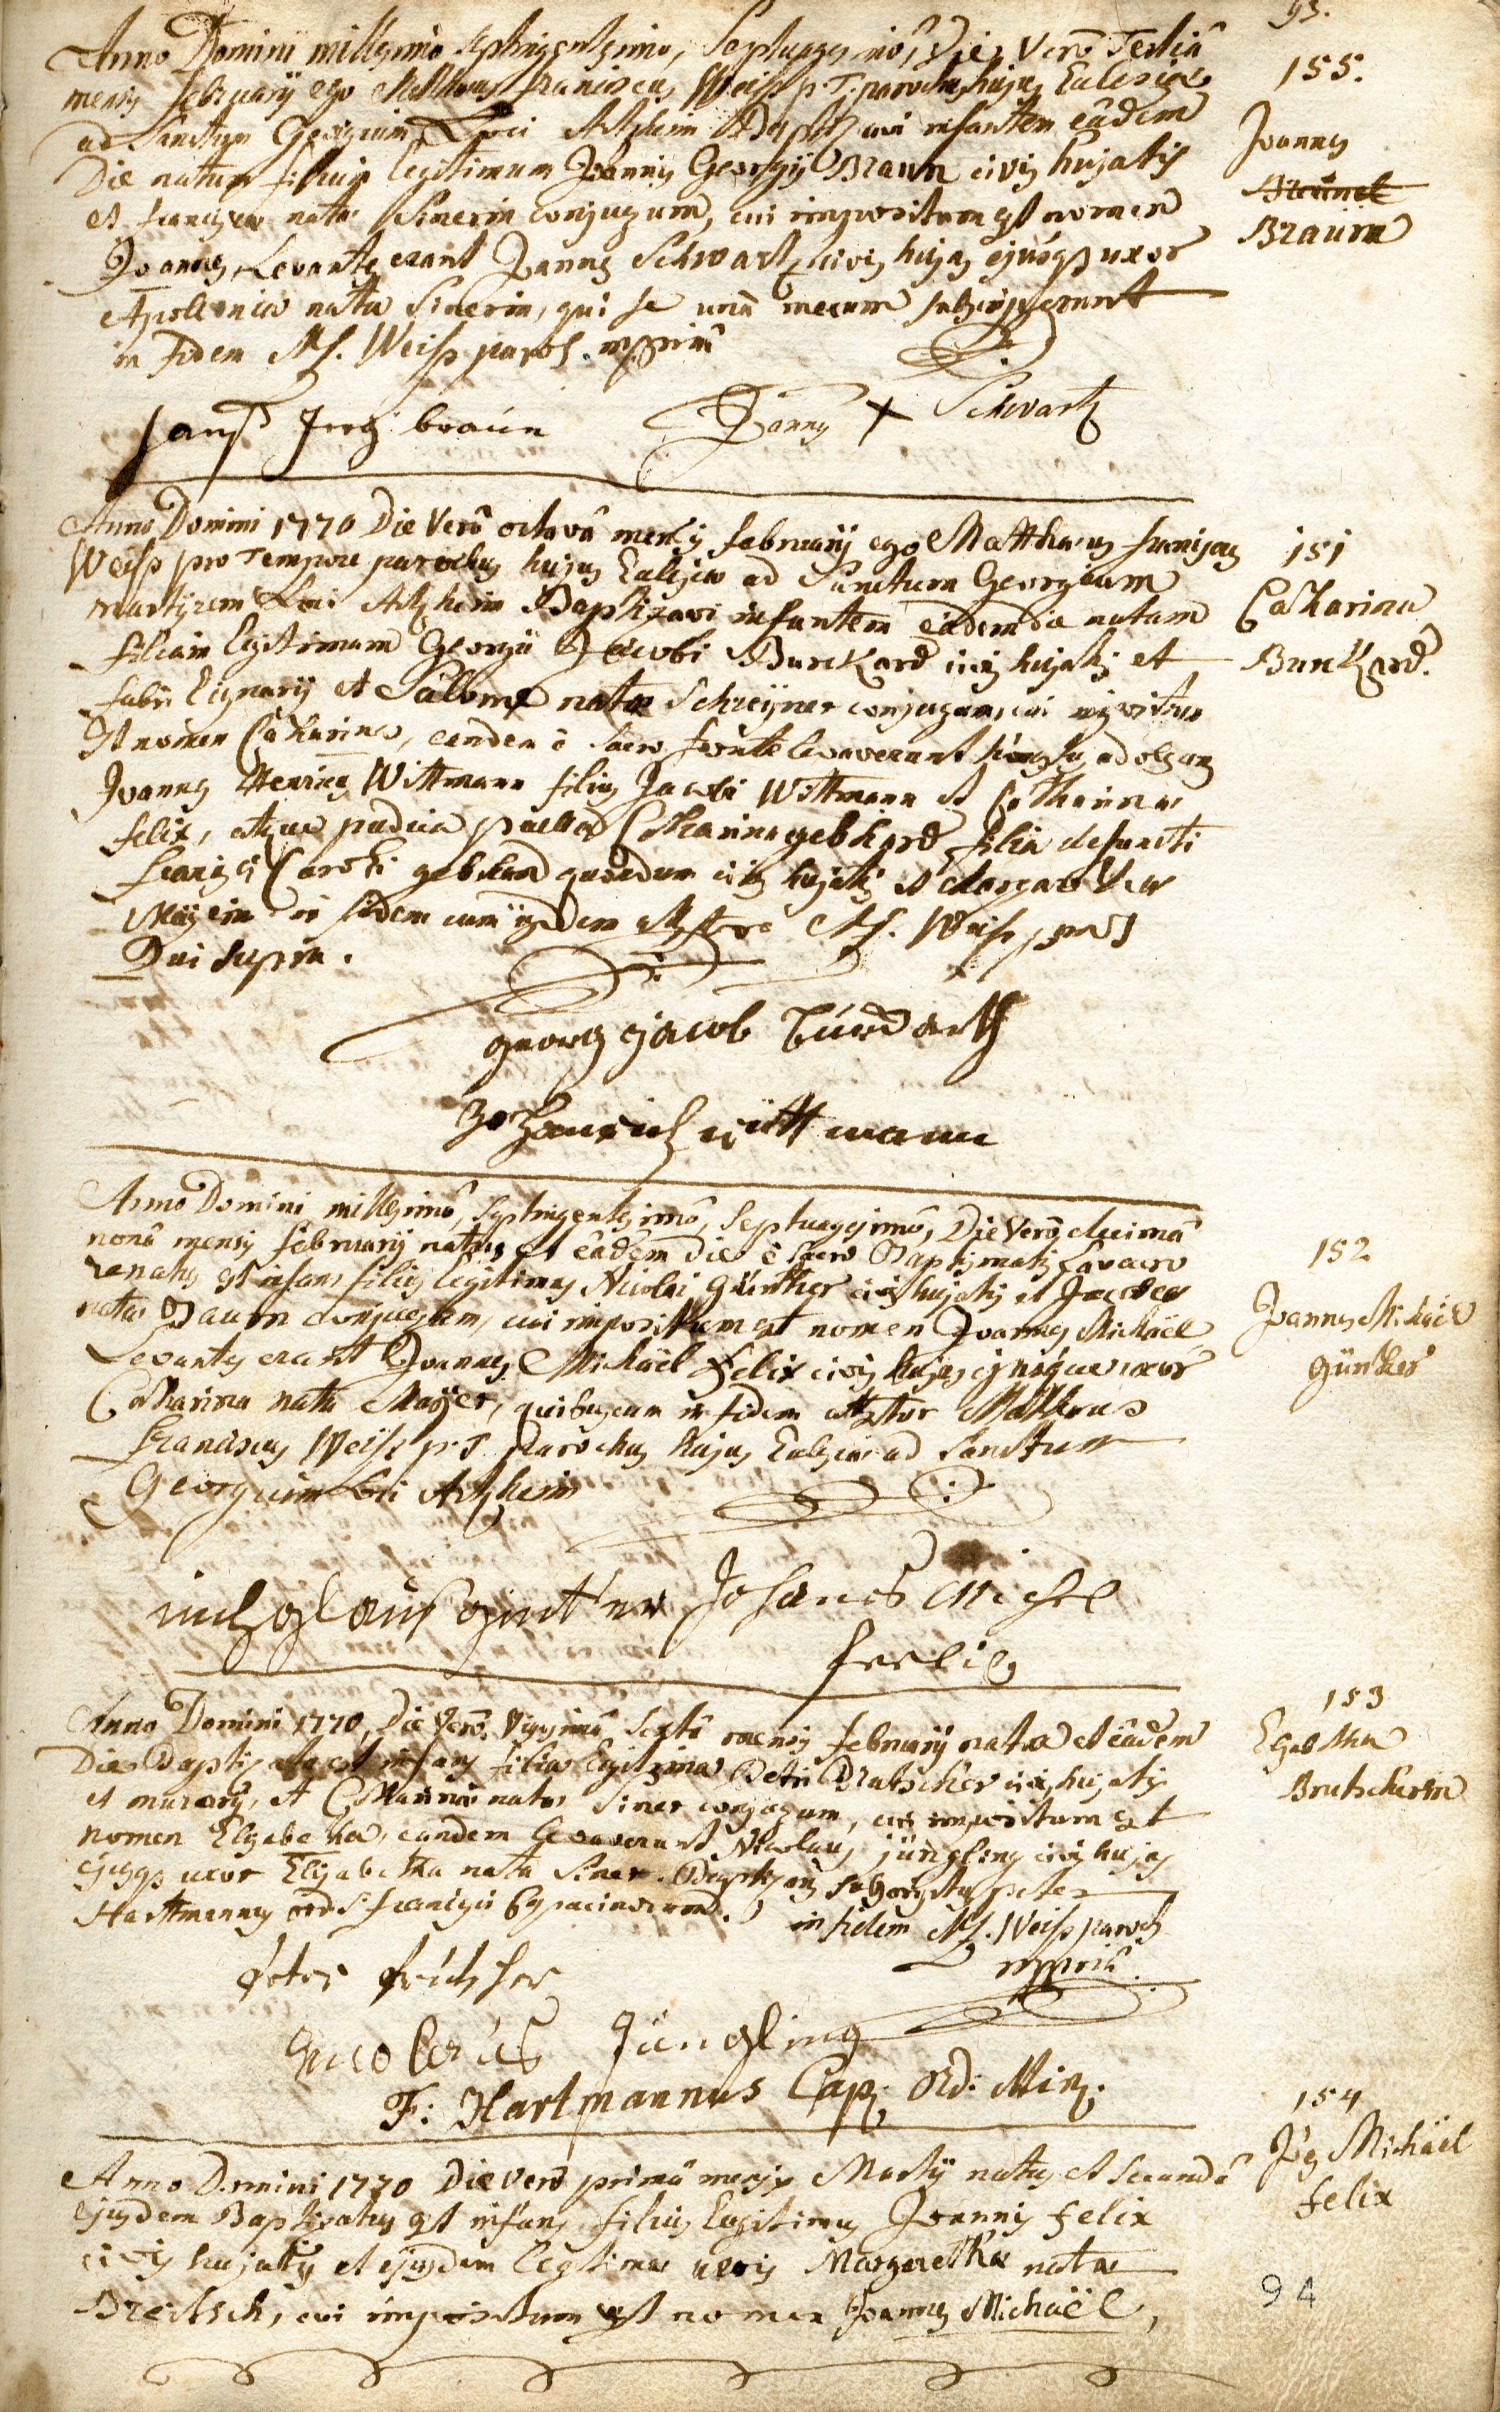 93.
Anno Domini millesimo septingentesimo, septuagesimo, Die Vero Tertiâ
155.
mensis februarij ego Matthaeus franciscus Weiss p. T. parochus hujus Ecclesiae
ad Sanctum Georgium Loci Artzheim Baptizavi infantem eâdem
Joannes
Die natum filium legitimum Joannis Georgij Braun civis hujatis
Braun
et franciscae natae Sinerin conjugum, cui impositum est nomen
Joannes, Levantes erant Joannes Schwartz civis hujas ejusque uxor
Apollonia nata Sinerin, qui se unâ mecum subscripserunt
in fidem M. f. Weiss paroch. mppriâ
Hanss Jerg braun Joannes + Schwartz
Anno Domini 1770 Die Verô octavâ mensis februarij ego Matthaeus franciscus
151
Weiss pro Tempore parochus hujus Ecclesiae ad Sanctum Georgium
martyrem Loci Artzheim Baptizavi infantem eâdem die natam
Catharina
filiam legitimam Georgii Jacobi Burckard civis hujatis et
Burckard.
fabri lignarij et Salome natae Schreijner conjugum, cui
est nomen Catharina, eandem è sacro fonte levaverunt adolescens
Joannes Henricus Wittmann filius Jacobi Wittmann et Catharinae
felix, atque pudica puella Catharina gebhard filia defuncti
francisci Caroli gebhard quondam civis hujatis et Margarethae
in fidem cum iisdem attestor M. f. Weiss
georg jacob burckarth
Joh henrich wittmann
Anno Domini millesimô, septingentesimô, septuagesimô, Die Verô decimâ
nonâ mensis februarij natus et eâdem die è sacro Baptismatis Lavacro
152
renatus est infans filius legitimus Nicolai günther civis hujatis et
natae Braun conjugum, cui impositum est nomen Joannes Michäel
Joannes Michäel
Levantes erant Joannes Michäel Felix civis hujas ejusque uxor
günther
Catharina nata Mayer, quibuscum in fidem attestor Matthaeus
franciscus Weiss p. T. Parochus hujus Ecclesiae ad Sanctum
Georgium Loci Artzheim
Johanes Michel
feelix
153
Anno Domini 1770, Die Verô Vigesimâ Sextâ mensis februarij nata et eâdem
Elisabetha
Die Baptizata est infans filia legitima Petri Brutscher civis hujatis
Brutscherin
et murarij, et Catharinae natae Siner conjugum, cui impositum est
nomen Elisabetha, eandem levaverunt Nicolaus jüngling civis hujas
ejusque uxor Elisabetha nata Siner. Baptizans subscripsit pater
Hartmannus ord. S. francisci Capucinorum. in fidem M. f. Weiss paroch
mppriâ.
Jüngling
F: Hartmannus Cap: Ord: Min:
154
Anno Domini 1770 Die Verô primâ mensis Martij natus et secundâ
Michäel
ejusdem Baptizatus est infans filius legitimus Joannis felix
felix
civis hujatis et ejusdem legitimae uxoris Margarethae natae
94
Breitsch, cui impositum est nomen Joannes Michäël,